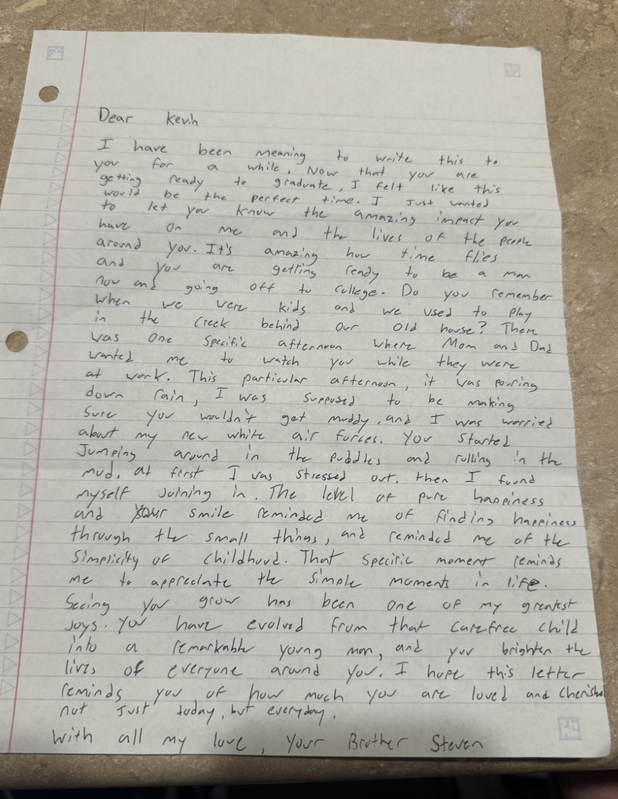 Dear Kevin
I have been meaning to write this to
you for a while. Now that you are
getting ready to graduate, I felt like this
would be the perfect time. I just wanted
to let you know the amazing impact you
have on me and the lives of the people
around you. It's amazing how time flies
and you are getting ready to be a man
now and going off to college. Do you remember
when we were kids and we used to play
in the creek behind our old house? There
was one specific afternoon where Mom and Dad
wanted me to watch you while they were
at work. This particular afternoon, it was pouring
down rain, I was supposed to be making
sure you wouldn't get muddy, and I was worried
about my new white air forces. You started
Jumping around in the puddles and rolling in the
mud, at first I was stressed out, then I found
myself joining in. The level of pure happiness
and your smile reminded me of finding happiness
through the small things, and reminded me of the
simplicity of childhood. That specific moment reminds
me to appreciate the simple moments in life.
Seeing you grow has been one of my greatest
joys. You have evolved from that carefree child
into a remarkable young man, and you brighten the
lives of everyone around you. I hope this letter
reminds you of how much you are loved and cherished
not just today, but everyday.
With all my love, Your Brother Steven